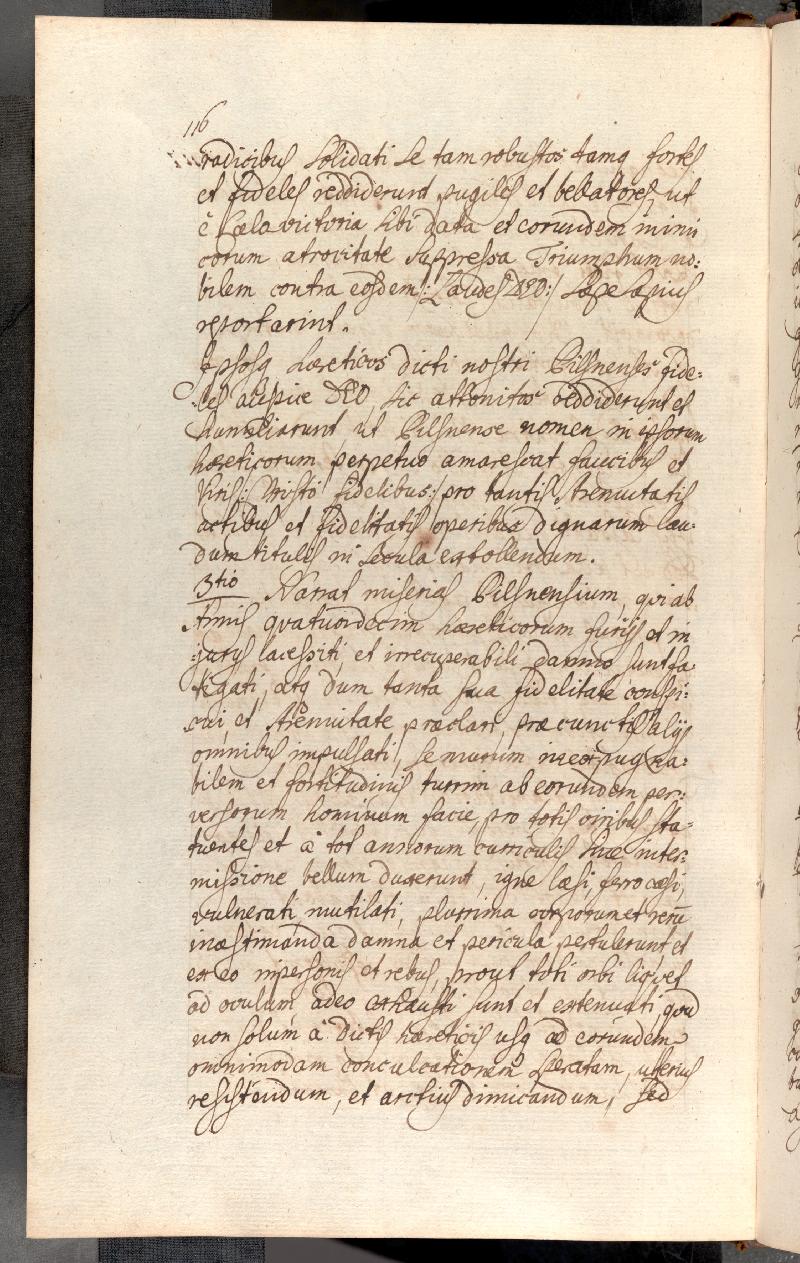 116
radicibus solidati se tam robustos tamq fortes
et fideles reddiderunt pugiles et bellatores, ut
è Cælo victoria sibi data et eorundem inimi
corum atrocitate suppressa Triumphum no:
bilem contra eosdem /: Laudes DEO :/ sæpe sæpius
reportarint.
Ipsosq hæreticos dicti nostri Pilsnenses fide:
les auspice DEO, sic attonitos reddiderunt et
humiliarunt ut Pilsnense nomen in ipsorum
hæreticorum perpetuo amarescat faucibus et
Viris /: Christo fidelibus :/ pro tantis strenuitatis
actibus et fidelitatis operibus dignarum lau:
dum titulis in secula extollendum.
3tio Narrat miserias Pilsnensium, qvi ab
Annis qvatuordecim hæreticorum furijs et in
jurijs lacessiti et irrecuperabili damno sunt fa:
tigati, atq dum tanta sua fidelitate conspi:
cui, et strenuitate præclari, præ cunctis alijs
omnibus impulsati, se murum inexpugna:
bilem et fortitudinis turrim ab eorundem per:
versorum hominum facie, pro totis viribus sta:
tuentes et à tot annorum curriculis sine inter:
missione bellum duxerunt, igne læsi, ferro cæsi,
vulnerati, mutilati, plurima corporum et rerũ
inæstimanda damna et pericula pertulerunt et
ex eo in personis et rebus, prout toti orbi liqvet
ad oculum, adeo exhausti sunt et extenuati, qvod
non solum à dictis hæreticis usq ad eorundem
omnimodam conculcationem speratam, ulterius
resistendum, et arctius dimicandum, sed